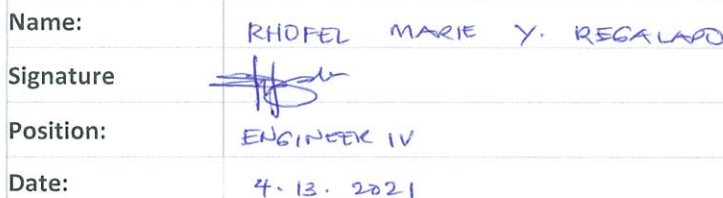 Name: RHOFEL MARIE Y. REGALADO
Signature
Position: ENGINEER IV
Date: 4.13.2021